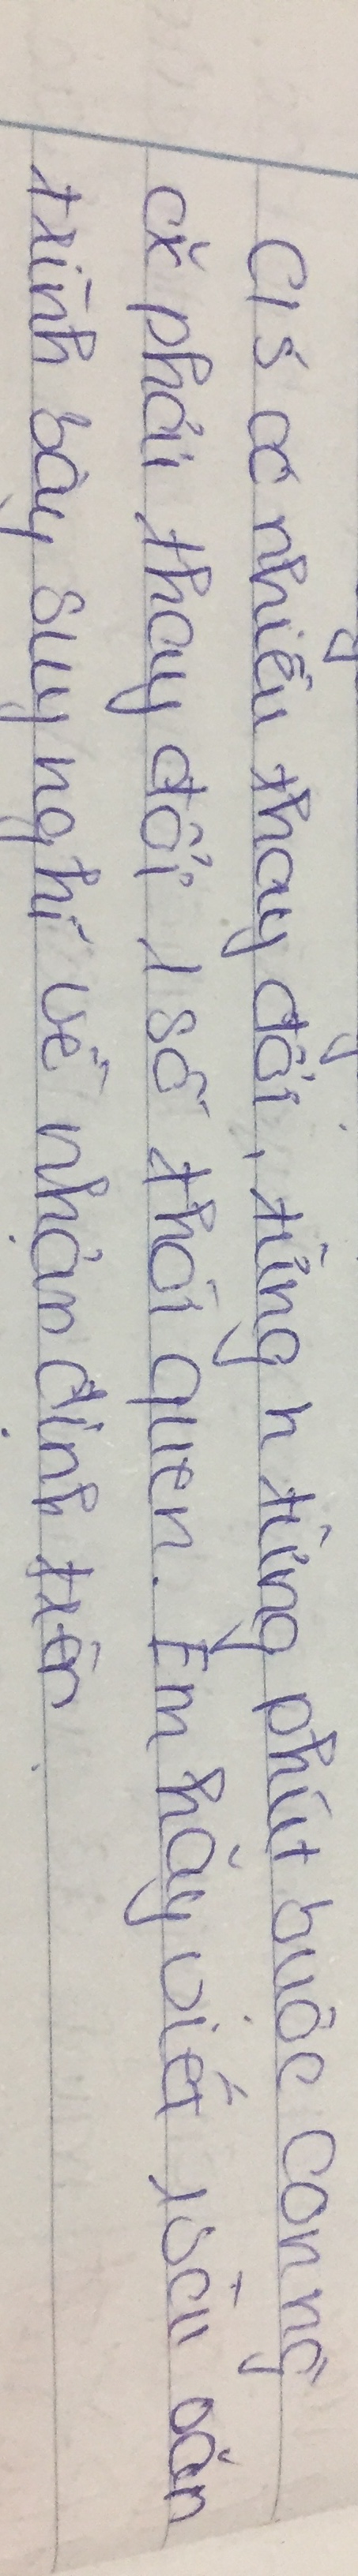 C/s có nhiều thay đổi, từng h từng phút buộc con ng
cx phải thay đổi 1 số thói quen. Em hãy viết 1 bài văn
trình bày suy nghĩ về nhận định trên